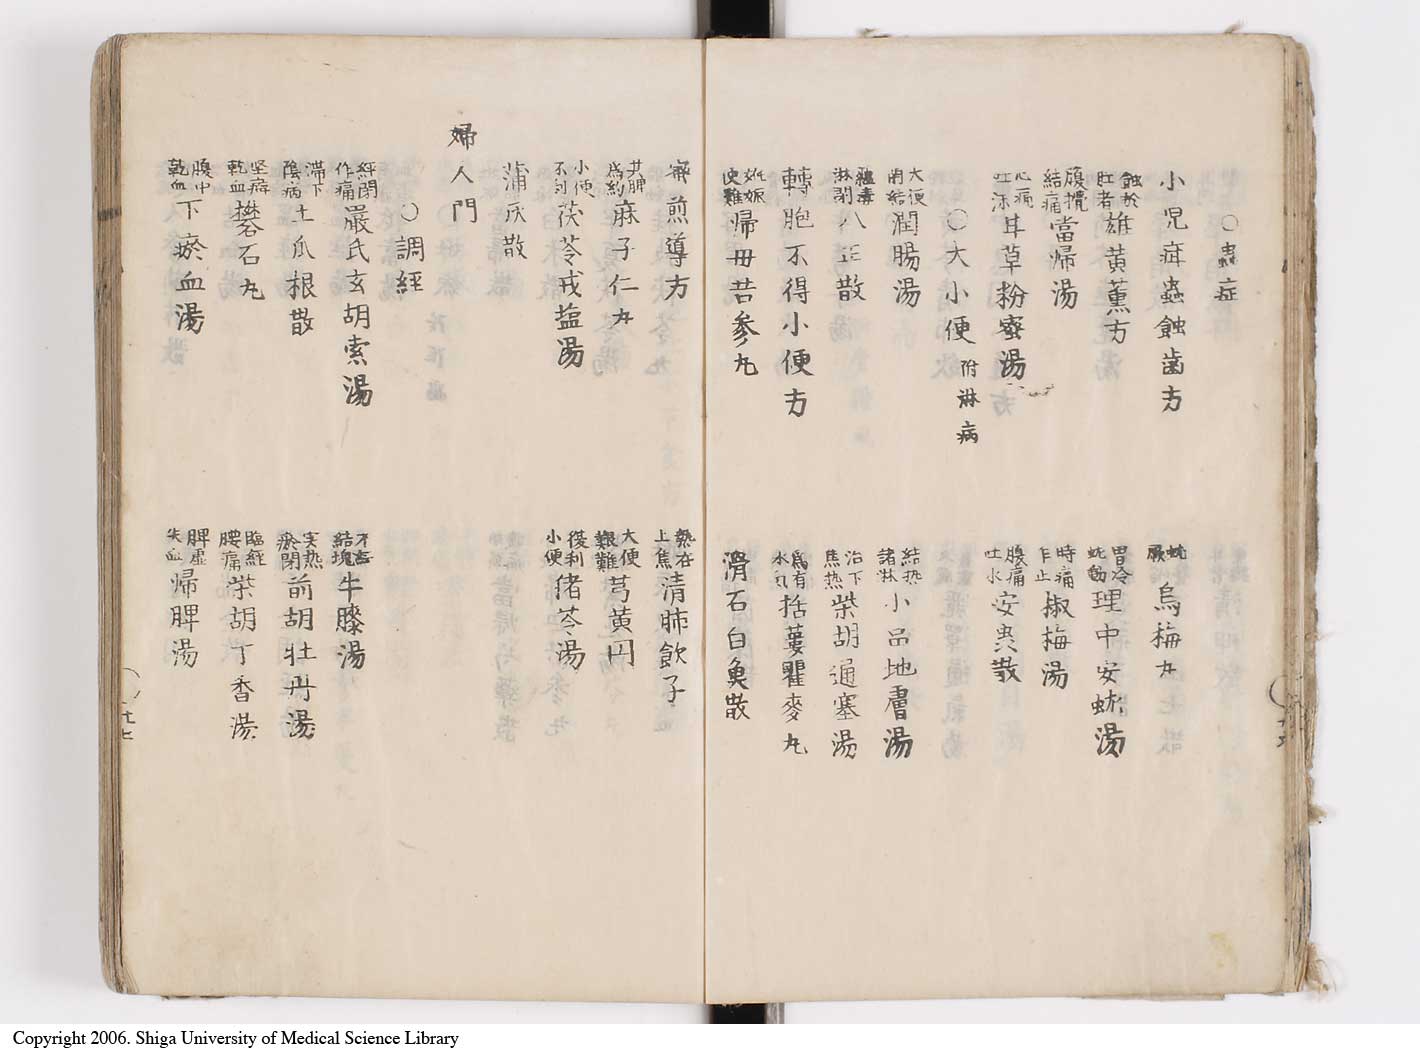 〇蟲症
小児疳蟲蝕歯方
蚘厥 烏梅丸
蝕於肛者 雄黄薫方
胃冷蚘動 理中安蚘湯
腹攪結痛 當帰湯
時痛乍止 椒梅湯
心痛吐沫 甘草粉蜜湯
腹痛吐水 安蚘散
〇大小便 附淋病
大便閉結 潤腸湯
結熱諸淋 小品地膚湯
蘊毒淋閉 八正散
治下焦熱 柴胡通塞湯
轉胞不得小便方
為有水氣 括蔞瞿麥丸
妊娠便難 帰母苦參丸
滑石白魚散
蜜煎導方
熱在上焦 清肺飲子
其脾為約 麻子仁丸
大便艱難 芎黄円
小便不利 茯苓戎塩湯
後利小便 猪苓湯
蒲灰散
婦人門
〇調經
經閉作痛 嚴氏玄胡索湯
結塊 牛膝湯
滞下陰病 土瓜根散
実熱瘀閉 前胡牡丹湯
坚癖乾血 礬石丸
臨經腰痛 柴胡丁香湯
腹中乾血 下瘀血湯
脾虚失血 帰脾湯
Copyright 2006. Shiga University of Medical Science Library